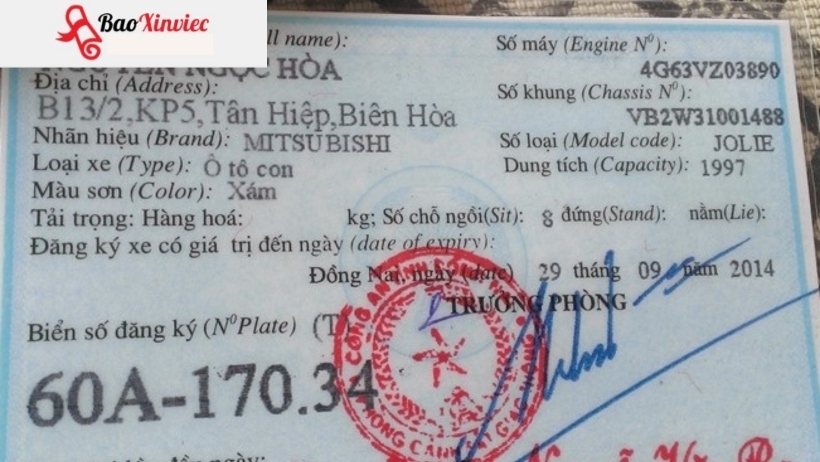 BaoXinviec
ll name):
NGUYỄN NGỌC HÒA
Địa chỉ (Address):
B13/2,KP5,Tân Hiệp,Biên Hòa
Nhãn hiệu (Brand): MITSUBISHI
Loại xe (Type): Ô tô con
Màu sơn (Color): Xám
Số máy (Engine Nº):
4G63VZ03890
Số khung (Chassis Nº):
VB2W31001488
Số loại (Model code): JOLIE
Dung tích (Capacity): 1997
Tải trọng: Hàng hoá: kg; Số chỗ ngồi(Sit): 8 đứng(Stand): nằm(Lie):
Đăng ký xe có giá trị đến ngày (date of expiry):
Đồng Nai, ngày (date) 29 tháng 09 năm 2014
TRƯỞNG PHÒNG
Biển số đăng ký (NºPlate) (T)
60A-170.34